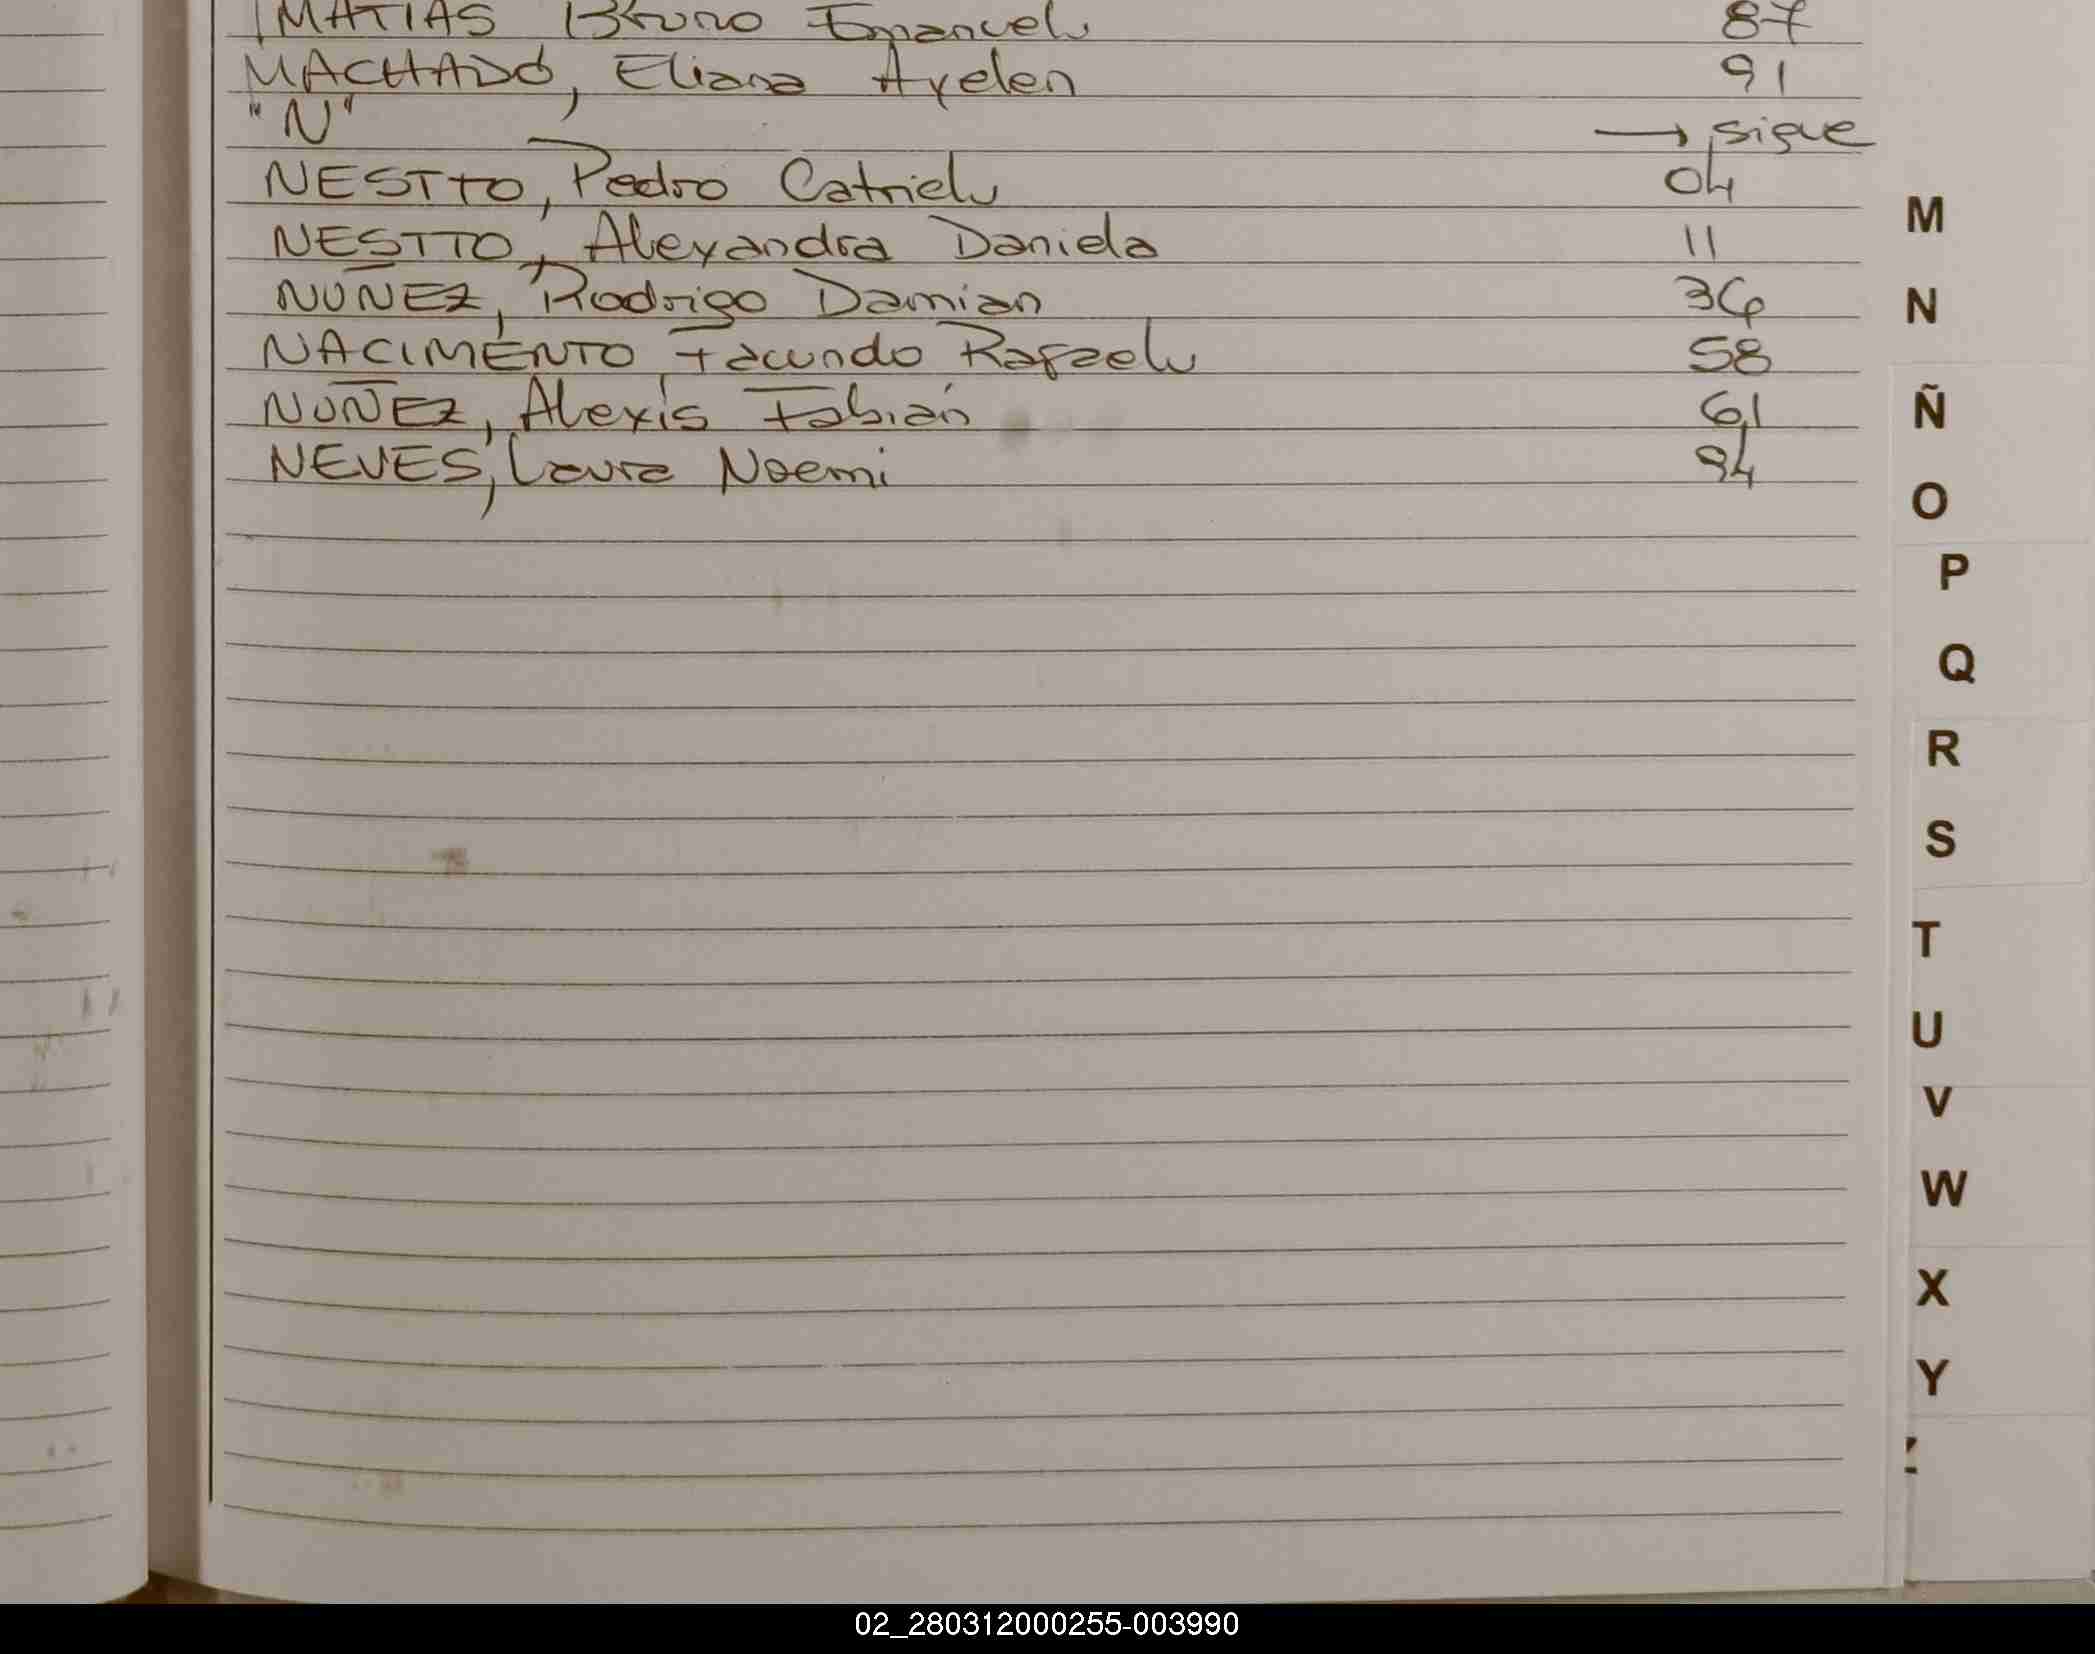 MATIAS Bruno Emanuel 87
MACHADO, Eliana Ayelen 91
"N" → sigue
NESTTO, Pedro Catriel 04
NESTTO, Alexandra Daniela 11
NUÑEZ, Rodrigo Damian 36
NACIMENTO Facundo Rafael 58
NUÑEZ, Alexis Fabián 61
NEVES, Laura Noemi 94
M
N
Ñ
O
P
Q
R
S
T
U
V
W
X
Y
Z
02_280312000255-003990